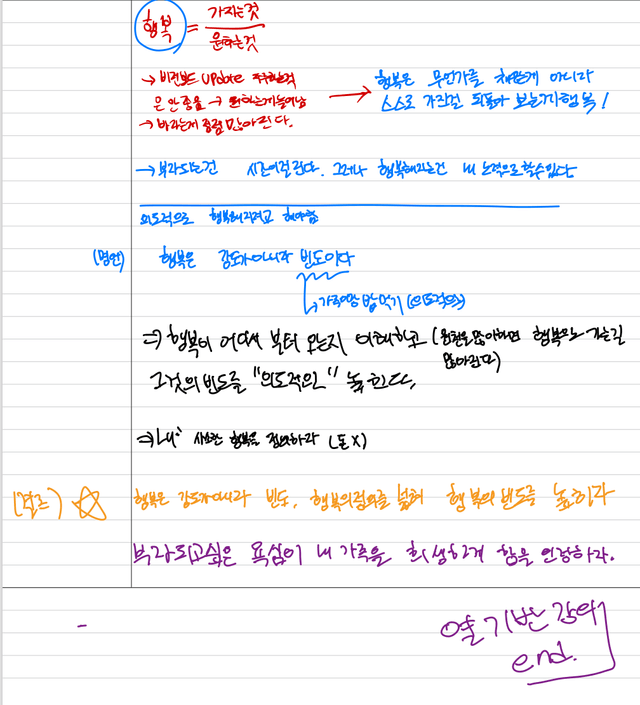 행복 = 가지는것 / 원하는것
→ 비전보드 update 하는것
은 안좋음 → 원하는게 늘어남
→ 바라는게 좀점 많아진다.
→ 행복은 무언가를 채우는게 아니라
스스로 가진걸 되돌아 보는게 행복!
→ 부자되는건 시간이걸린다. 그러나 행복해지는건 내 노력으로 할수있다
의도적으로 행복해지려고 해야함
(명언) 행복은 강도가아니라 빈도이다
→ 가족이랑 밥먹기 (의도적으로)
⇒ 행복이 어디서 부터 오는지 이해하고 (원천을 많이하면 행복으로 가는길
많아진다)
그것의 빈도를 "의도적인" 높힌다.
⇒ 나만 사소한 행복을 정의하라 (돈 X)
(결론) ☆ 행복은 강도가아니라 빈도, 행복의정의를 넓혀 행복의 빈도를 높히라
부자되고싶은 욕심이 내 가족을 희생하게 함을 인정하라.
-
열기반 강의
end.